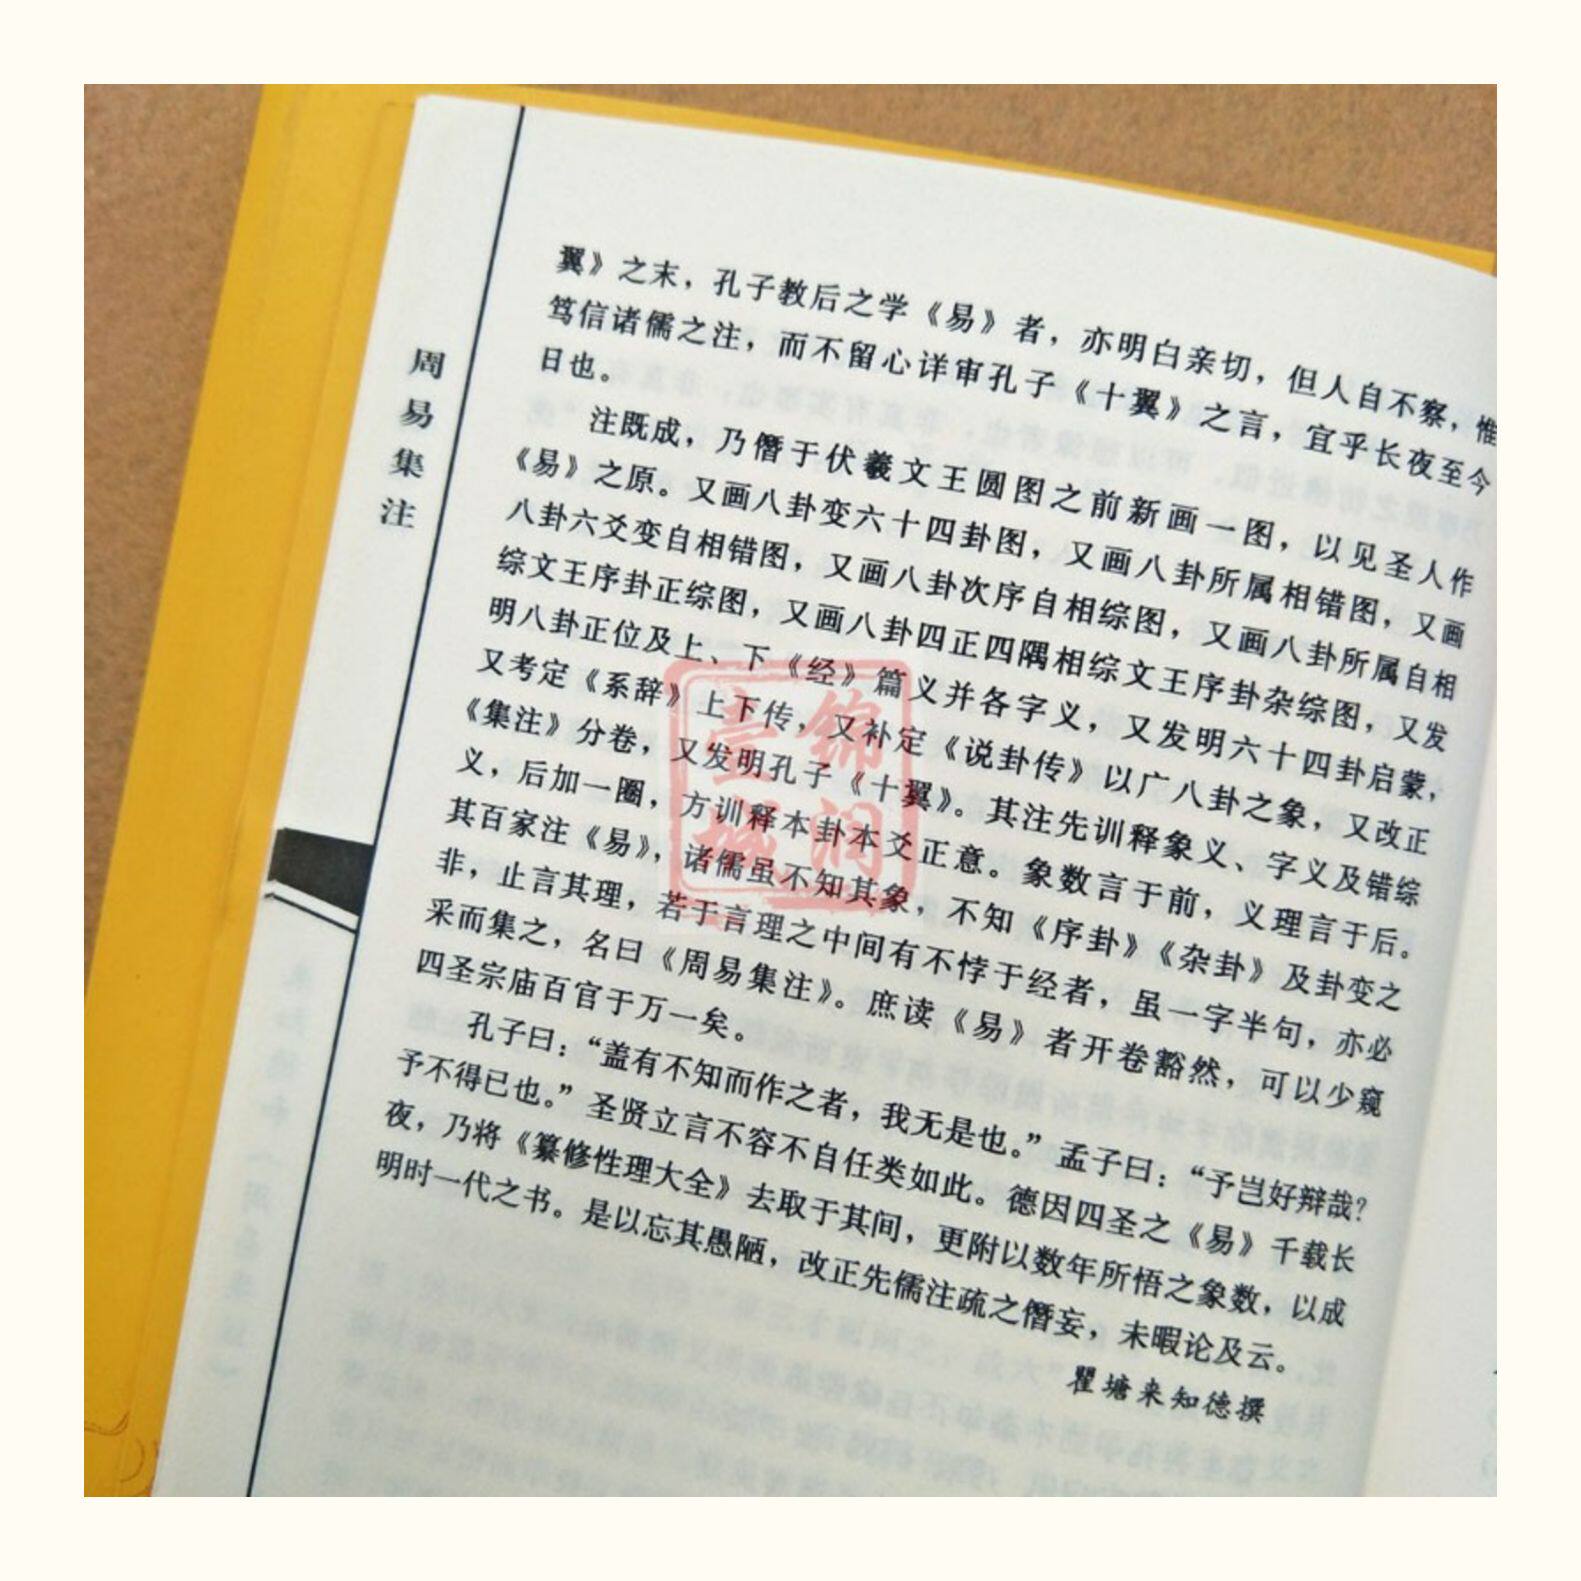 周易集注
翼》之末，孔子教后之学《易》者，亦明白亲切，但人自不察，惟
笃信诸儒之注，而不留心详审孔子《十翼》之言，宜乎长夜至今
日也。
注既成，乃僭于伏羲文王圆图之前新画一图，以见圣人作
《易》之原。又画八卦变六十四卦图，又画八卦所属相错图，又画
八卦六爻变自相错图，又画八卦次序自相综图，又画八卦所属自相
综文王序卦正综图，又画八卦四正四隅相综文王序卦杂综图，又发
明八卦正位及上、下《经》篇义并各字义，又发明六十四卦启蒙，
又考定《系辞》上下传，又补定《说卦传》以广八卦之象，又改正
《集注》分卷，又发明孔子《十翼》。其注先训释象义、字义及错综
义，后加一圈，方训释本卦本爻正意。象数言于前，义理言于后。
其百家注《易》，诸儒虽不知其象，不知《序卦》《杂卦》及卦变之
非，止言其理，若于言理之中间有不悖于经者，虽一字半句，亦必
采而集之，名曰《周易集注》。庶读《易》者开卷豁然，可以少窥
四圣宗庙百官于万一矣。
孔子曰：“盖有不知而作之者，我无是也。”孟子曰：“予岂好辩哉？
予不得已也。”圣贤立言不容不自任类如此。德因四圣之《易》千载长
夜，乃将《纂修性理大全》去取于其间，更附以数年所悟之象数，以成
明时一代之书。是以忘其愚陋，改正先儒注疏之僭妄，未暇论及云。
瞿塘来知德撰
锦润